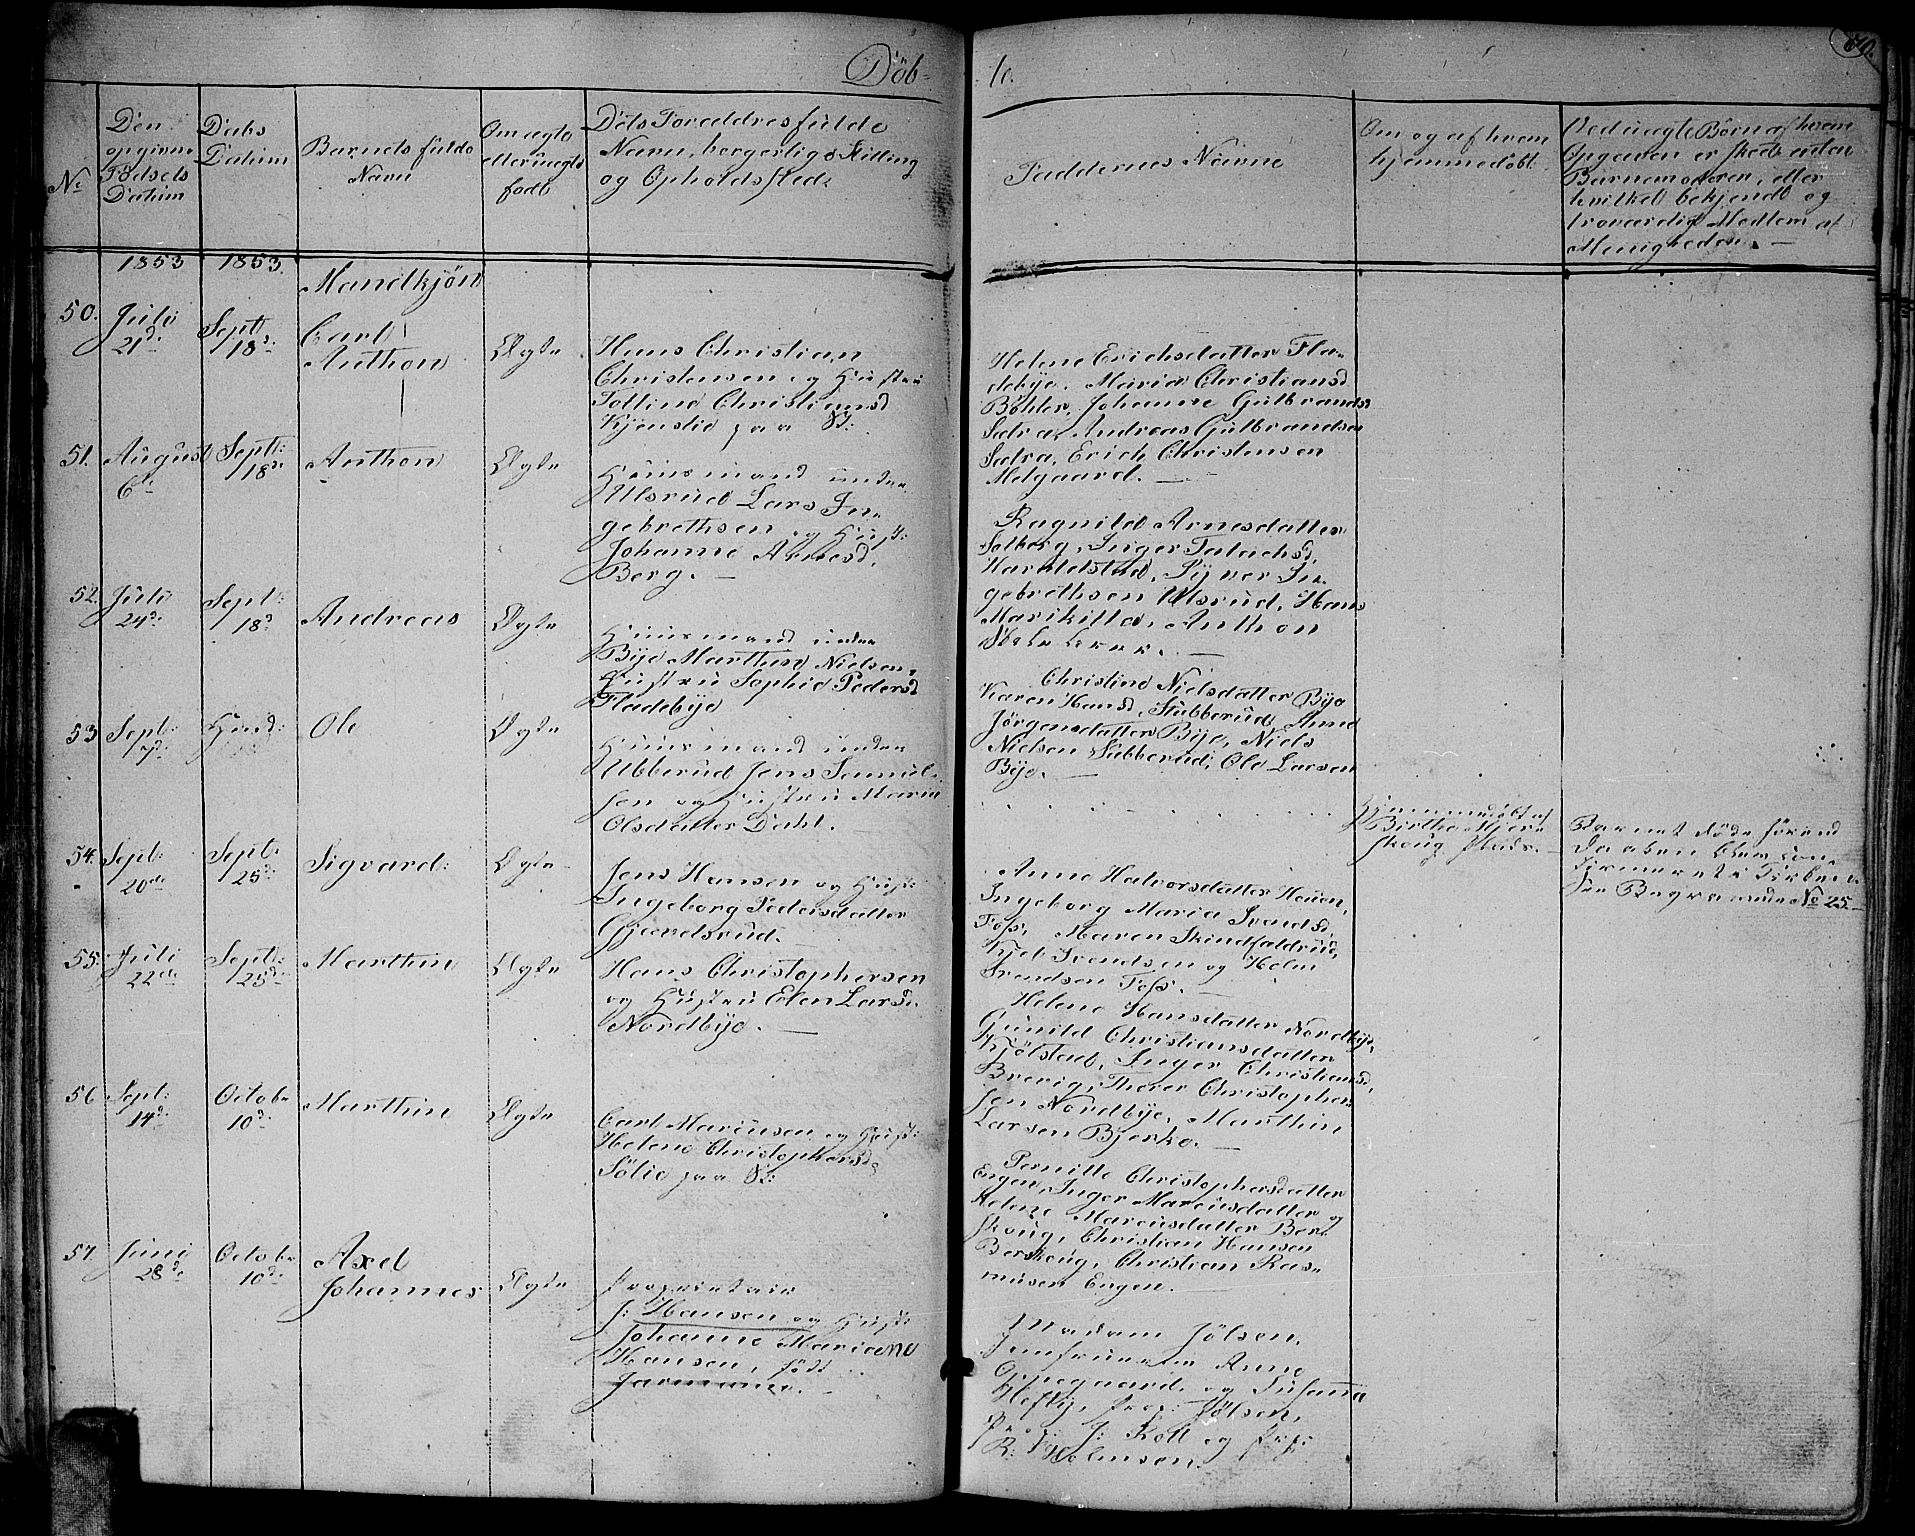 Döb-
te.
69.
No
Den
opgivne
Födsels
Datum
Daabs
Datum
Barnets fulde
Navn
Om ægte
eller uægte
født
Dets Forældres fulde
Navn, borgerlig Stilling
og Opholdssted
Faddernes Navne
Om og af hvem
hjemmedøbt
Ved uægte Börn af hvem
Opgaven er skedt enten
Barnemoderen, eller
hvilket bekjendt og
troværdig Medlem af
Menigheden. —
1853 1853.
Mandkjön
50. Juli
21d:
Sept
18d:
Carl
Anthon
Ægte
Hans Christian
Christensen og Hustru
Christiansd
Kjenslie paa St:
Helene Erichsdatter Fla-
debye. Maria Christiansd
Böhler, Johanne Gulbrands
Sætra, Andreas Gulbrandsen
Sætra, Erich Christensen
Melgaard. —
51. August
6te
Sept:
18d:
Anthon
Ægte
Huusmand under
Ulsrud Lars In-
gebrethsen og Hust:
Johanne Arnesd.
Berg. —
Ragnild Arnesdatter
Solberg, Inger
Haraldstad, Syver In-
gebrethsen Ulsrud, Hans
Anthon
52. Juli
24d:
Sept:
18d:
Andreas
Ægte
Huusmand under
Bye Marthin Nielsen,
Hustru Sophie Pedersd
Fladebye
Christine Nielsdatter Bye
Karen Hansd. Stubberud, Anne
Jörgensdatter Bye, Niels
Nielsen Stubberud, Ole Larsen
Bye. —
53 Sept:
7d:
Ole
Ægte
Huusmand under
Ubberud Jens Semul-
sen og Hustru Maria
Olsdatter Dahl. —
Hjemmedöbt af
Birthe
skoug Plads. —
Barnet döde förend
Daaben blev con-
firmeret i Kirken
See No 25. —
54. Sept:
20de
Sept:
25d:
Sigvard:
Ægte
Jens Hansen og Hust:
Ingeborg Pedersdatter
Gjævelsrud. —
Anne Halvorsdatter Hauen,
Ingeborg Maria Svendsd.
Foss, Maren Skindfaldrud,
Kjel Svendsen og Helm
Svendsen Foss. —
55. Juli
22de
Sept:
25d:
Marthin
Ægte
Hans Christophersen
og Hustru Elen Larsd.
Nordbye. —
Helene Hansdatter Nordbye,
Gunild Christiansdatter
Kjölstad, Inger Christiansd.
Brevig, Thorer Christopher-
sen Nordbye, Marthin
Larsen Bjerke. —
56 Sept:
14d:
Octobr
10d:
Marthin
Ægte
Carl Marcusen og Hust:
Helene Christophersd:
Sölie paa St:
Pernille Christophersdatter
Engen, Inger Marcusdatter og
Helene Marcusdatter Ber-
skoug, Christian Hansen
Berskoug, Christian Ras-
musen Engen. —
57. Juni
28de
Octobr
10d:
Axel
Johannes
Ægte
Proprietair
J: Hansen og Hust:
Johanne Mariane
Hansen, född
Madam Jölsen,
Jomfruerne Anne
Oppegaard og Susanna
Heftÿ, Prop: Jölsen,
J: Koll og Prp:
R: Holmsen.